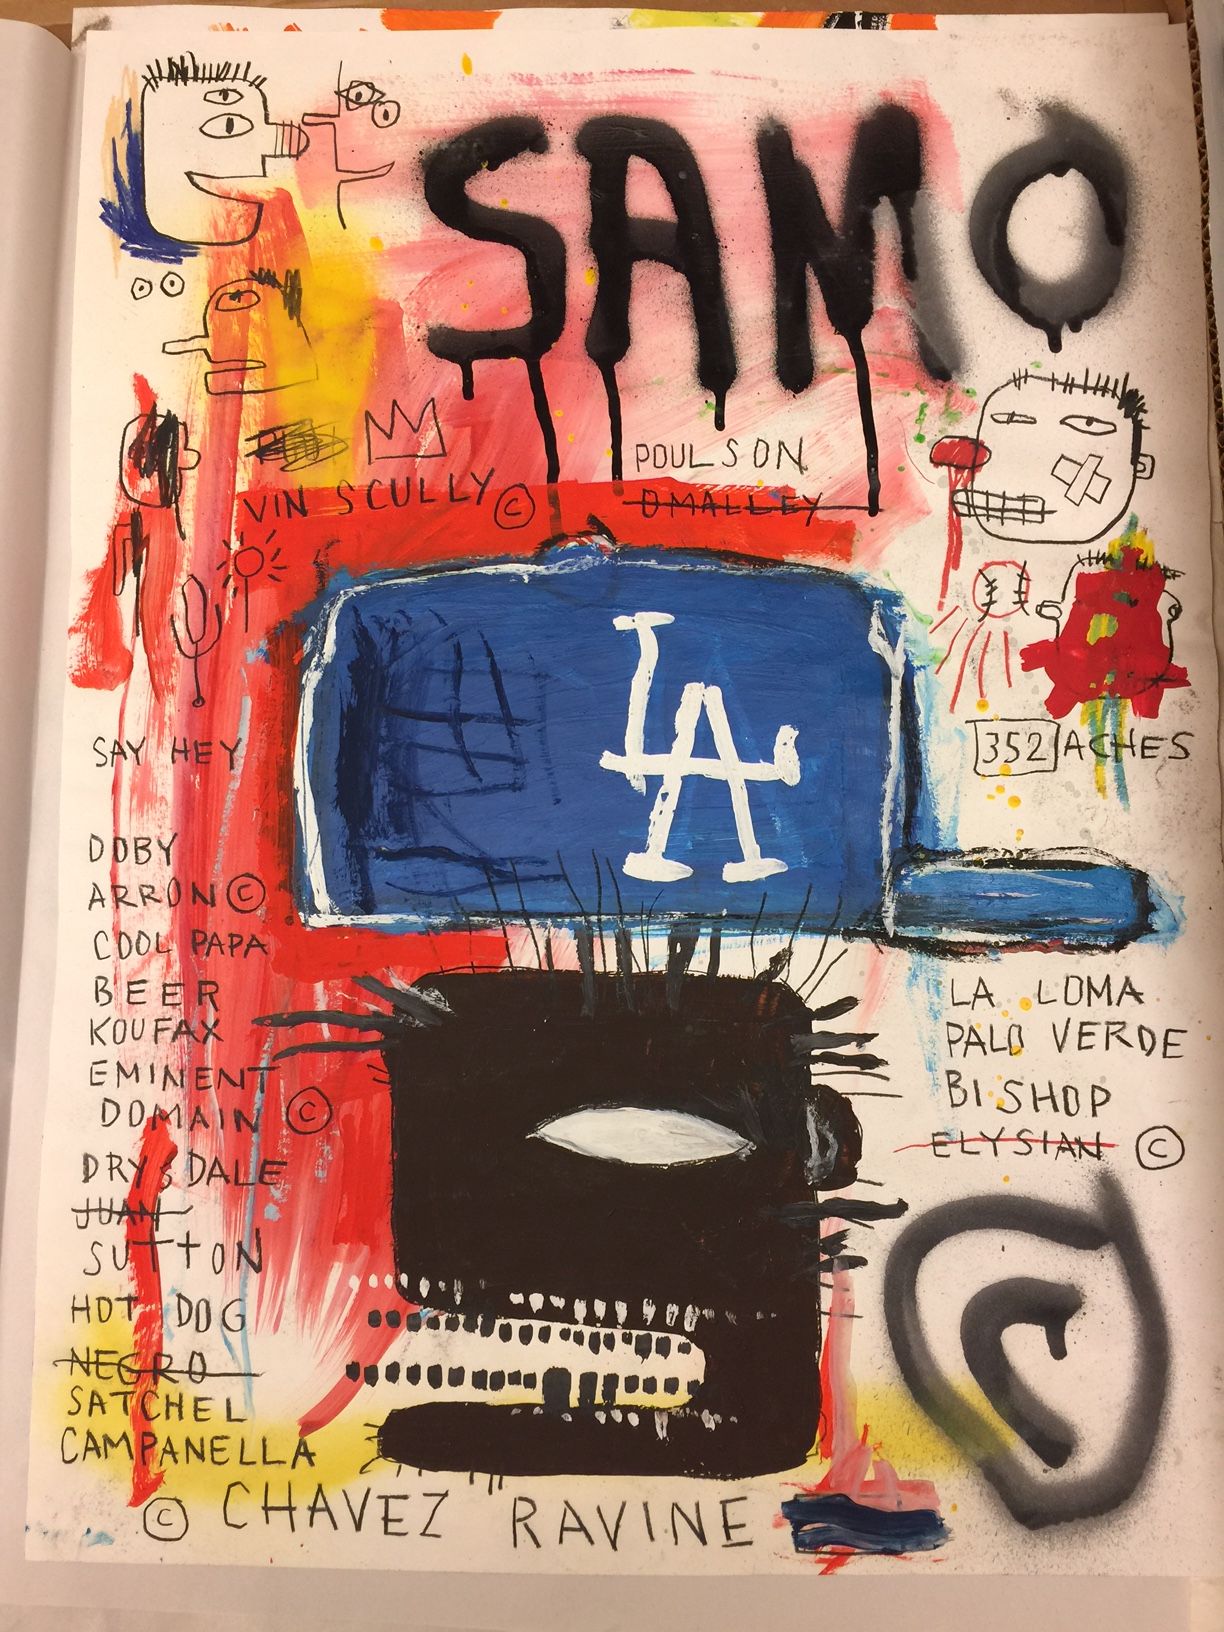 SAMO
POULSON
OMALLEY
VIN SCULLY ©
LA
352 ACHES
SAY HEY
DOBY
ARRON ©
COOL PAPA
BEER
KOUFAX
EMINENT
DOMAIN ©
DRYSDALE
JUAN
SUTTON
HOT DOG
NEGRO
SATCHEL
CAMPANELLA
LA LOMA
PALO VERDE
BISHOP
ELYSIAN ©
©
© CHAVEZ RAVINE